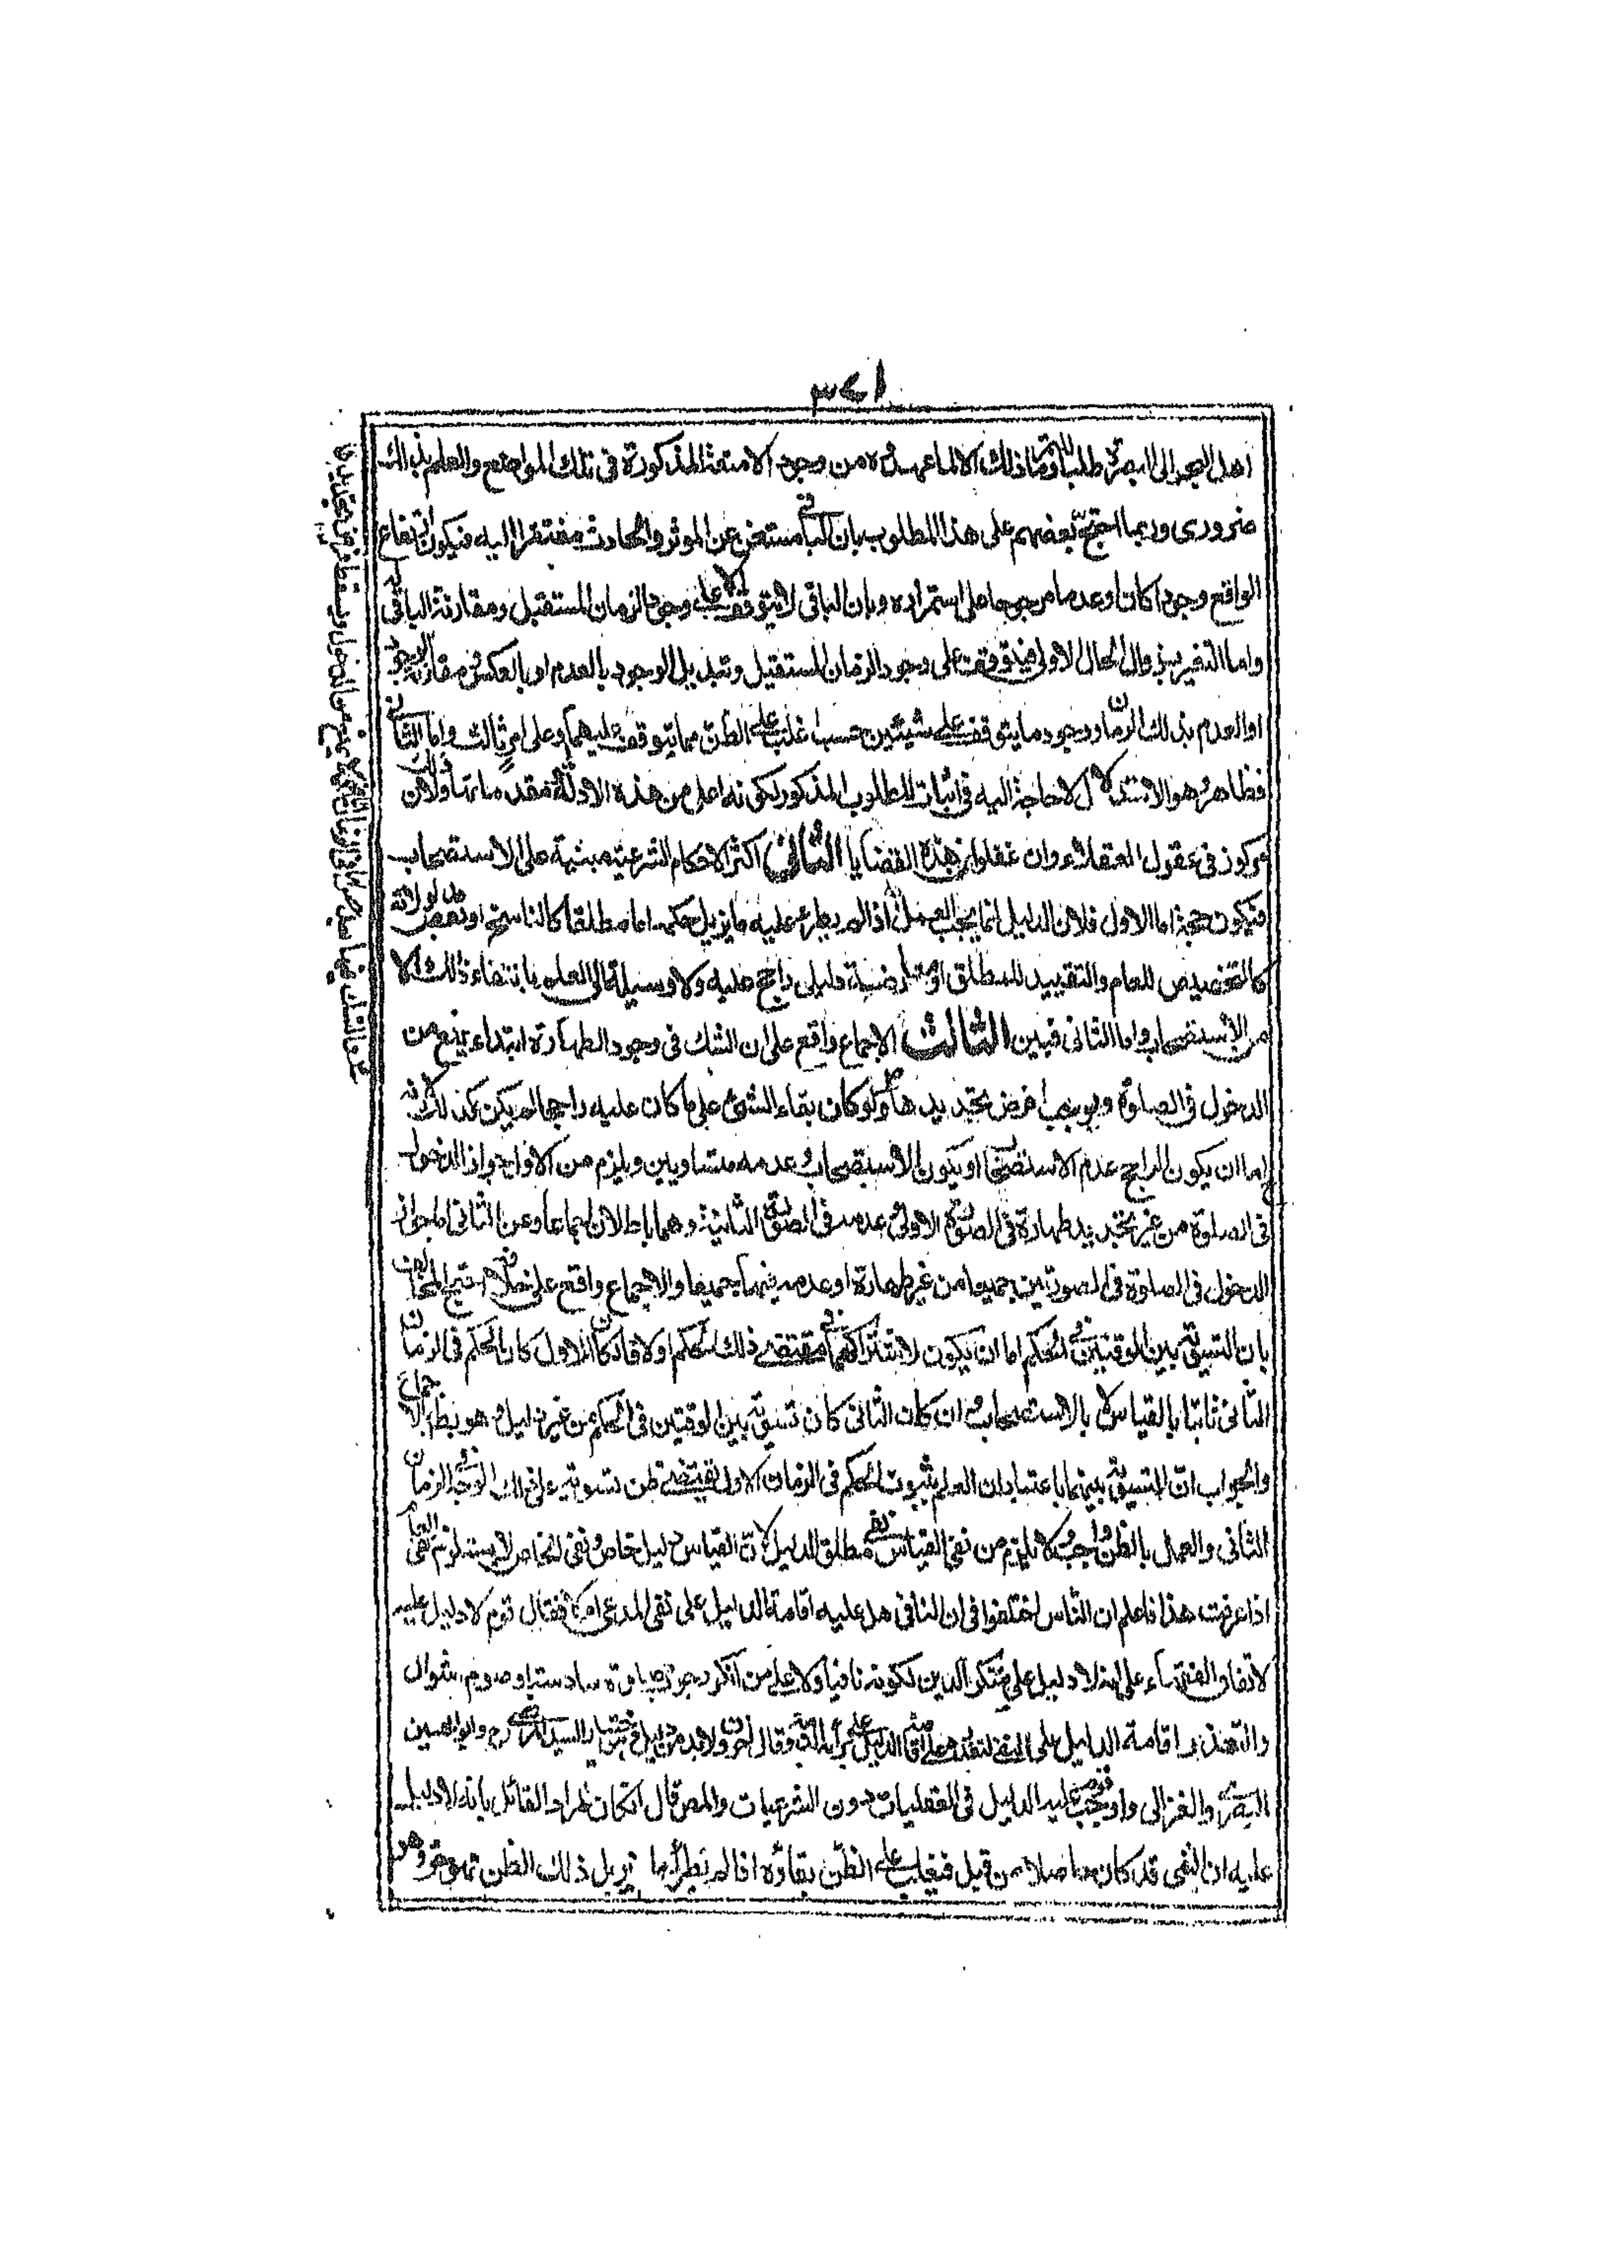 ٣٤١
اهل البحر الى البصرة طلبا وما ذلك الا لما عهدوه من وجود الامتعة المذكورة فى تلك المواضع والعلم بذلك
ضرورى وربما احتج بعضهم على هذا المطلوب بان الباقى مستغن عن الموثر والحادث مفتقرا اليه فيكون ارتفاع
الواقع وجودا كان او عدما مرجوحا على استمراره وبان الباقى لا يتوقف الا على وجود الزمان المستقبل ومقارنة الباقى له
واما التغير بزوال الحال الاولى فيتوقف على وجود الزمان المستقبل وتبديل الوجود بالعدم او بالعكس ومقارنة الوجود
او العدم بذلك الزمان ووجود ما يتوقف على شيئين حسب اغلب على الظن مما يتوقف عليهما وعلى امر ثالث واما الثانى
فظاهر وهو الاستدلال لا حاجة اليه فى اثبات المطلوب المذكور لكونه اعلى من هذه الادلة مقدماتها ولان ذلك
مركوز فى عقول العقلاء وان غفلوا عن هذه القضايا الثانى اكثر الاحكام الشرعية مبنية على الاستصحاب
فيكون حجة اما الاول فلان الدليل انما يجب العمل به اذا لم يطرء عليه ما يزيل حكمه اما مطلقا كالناسخ او بعض مدلولاته
كالتخصيص للعام والتقييد للمطلق او معارضة دليل راجح عليه ولا وسيلة الى العلم بانتفاء ذلك الا
من الاستصحاب واما الثانى فبين الثالث الاجماع واقع على ان الشك فى وجود الطهارة ابتداء يمنع من
الدخول فى الصلوة ويوجب فرض تجديدها ولو كان بقاء الشئ على ما كان عليه راجحا لم يكن كذلك لانه
اما ان يكون الراجح عدم الاستصحاب او يكون الاستصحاب وعدمه متساويين ويلزم من الاول جواز الدخول
فى الصلوة من غير تجديد طهارة فى الصورة الاولى وعدمه فى الصورة الثانية وهما باطلان اجماعا وعن الثانى اما جواز
الدخول فى الصلوة فى الصورتين جميعا من غير طهارة او عدمه فيهما جميعا والاجماع واقع على خلافه احتج المخالف
بان التسوية بين الوقتين فى الحكم اما ان يكون لاشتراكهما فى مقتضى ذلك الحكم اولا فان كان الاول كان الحكم فى الزمان
الثانى ثابتا بالقياس لا بالاستصحاب وان كان الثانى كان تسوية بين الوقتين فى الحكم من غير دليل وهو بط بالاجماع
والجواب ان التسوية بينهما باعتبار ان العلم بثبوت الحكم فى الزمان الاول يقتضى ظن ثبوته على ذلك الوجه فى الزمان
الثانى والعمل بالظن واجب ولا يلزم من نفى القياس نفى مطلق الدليل لان القياس دليل خاص ونفى الخاص لا يستلزم نفى العام
اذا عرفت هذا فاعلم ان الناس اختلفوا فى ان النافى هل عليه اقامة الدليل على نفى المدعى ام لا فقال قوم لا دليل عليه
لاتفاق الفقهاء على انه لا دليل على منكر الدين لكونه نافيا ولا على من انكر وجوب صلوة سادسة او صوم شوال
والتعذر اقامة الدليل على النفى وقال اخرون لا بد من دليل السيد المرتضى رح وابو الحسين
البصرى والغزالى واوجب قوم عليه الدليل فى العقليات دون الشرعيات والمص قال ان كان مراد القائل بانه لا دليل
عليه ان النفى قد كان حاصلا من قبل فيغلب على الظن بقاؤه اذا لم يطرأ ما يزيل ذلك الظن فهو حق وهو